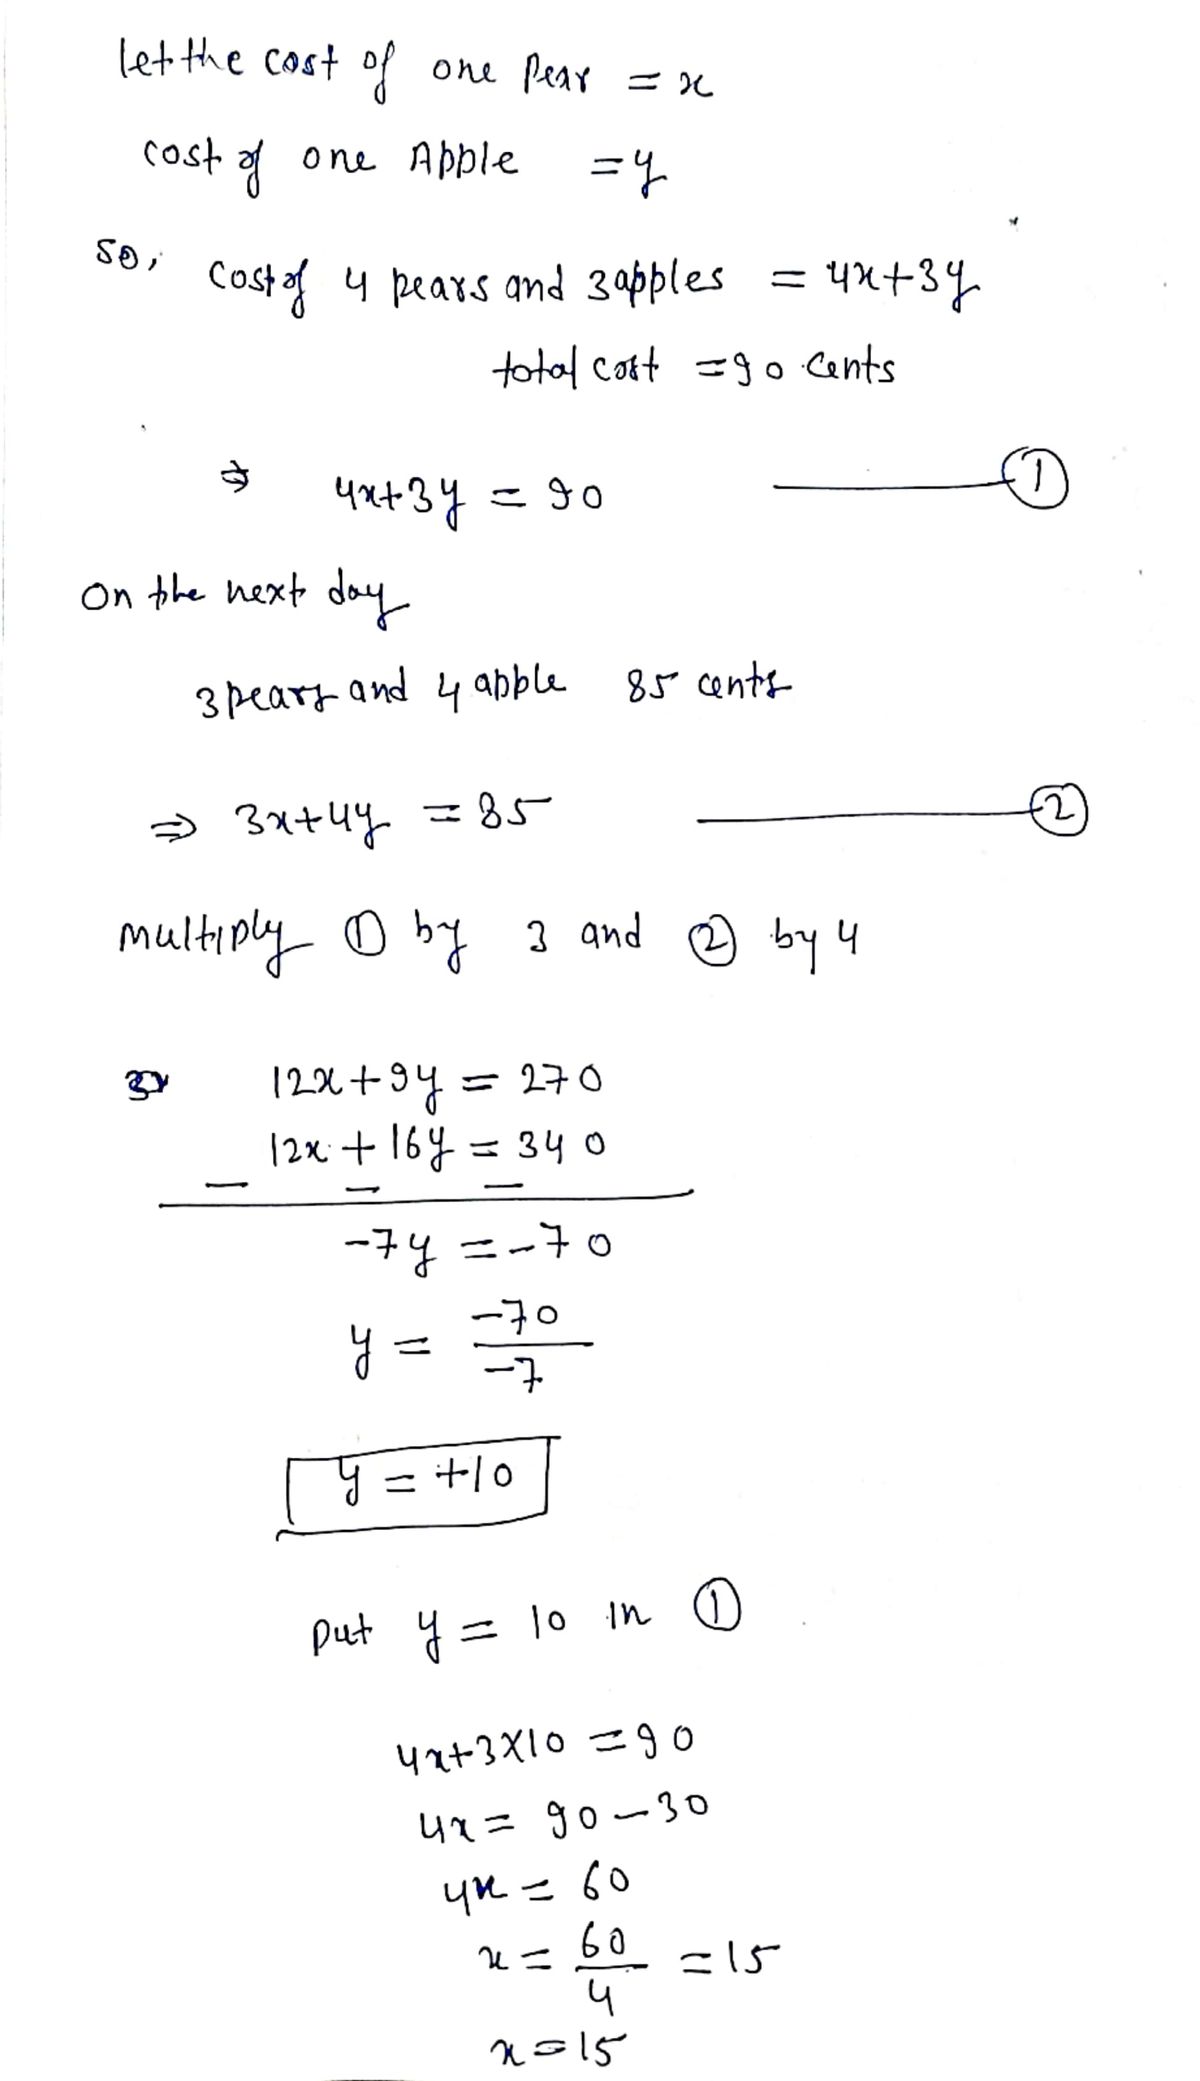 let the cost of one Pear = x
cost of one Apple = y
so, cost of 4 pears and 3 apples = 4x+3y
total cost = 90 cents
⇒ 4x+3y = 90 ——— ①
On the next day
3 pears and 4 apple 85 cents
⇒ 3x+4y = 85 ——— ②
multiply ① by 3 and ② by 4
12x+9y = 270
12x + 16y = 340
— — —
-7y = -70
y = -70/-7
y = +10
put y = 10 in ①
4x+3×10 = 90
4x = 90-30
4x = 60
x = 60/4 = 15
x = 15